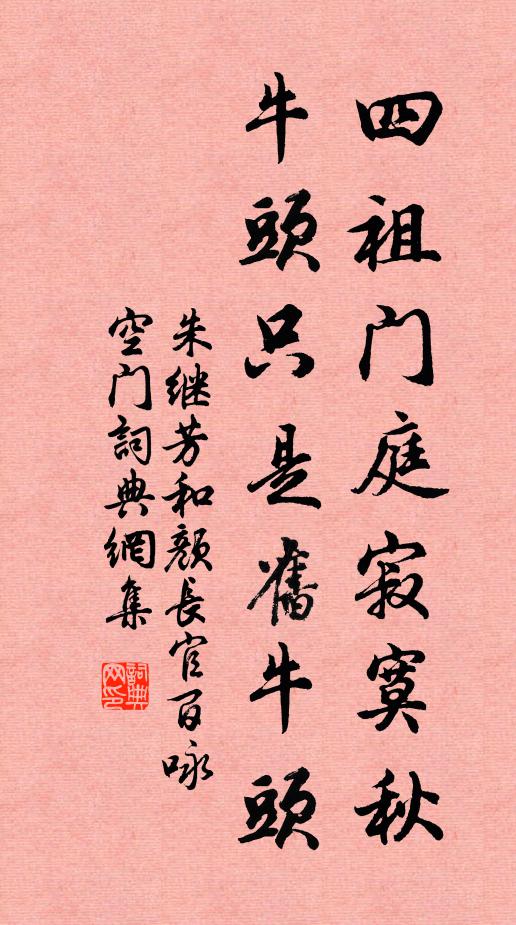 四祖门庭寂寞秋
牛頭只是舊牛頭
朱继芳和顔長官百咏
空门詞典網集
詞典网印